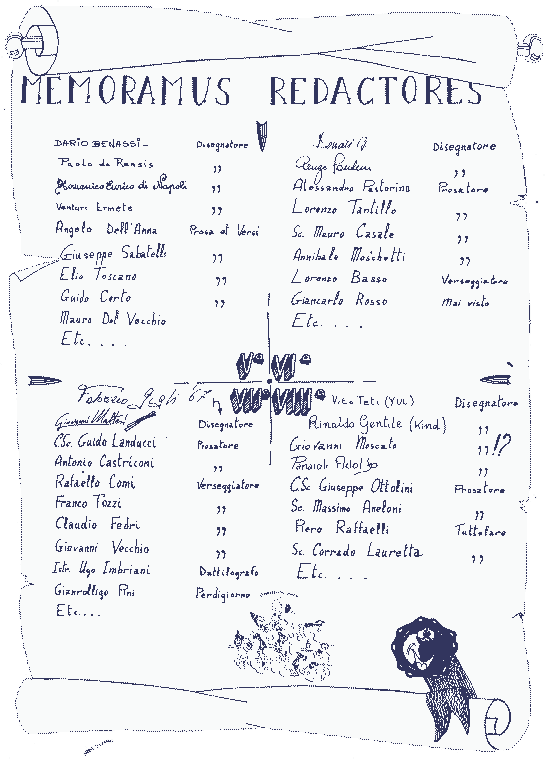 MEMORAMUS REDACTORES
DARIO BENASSI - Disegnatore
Paolo de Rensis "
Domenico Enrico di Napoli "
Venturi Ermete "
Angelo Dell'Anna Prosa et Versi
Giuseppe Sabatelli "
Elio Toscano "
Guido Certo "
Mauro Del Vecchio
Etc. . . .
Disegnatore
"
Alessandro Pastorino Prosatore
Lorenzo Tantillo "
Sc. Mauro Casale "
Annibale Moschetti "
Lorenzo Basso Verseggiatore
Giancarlo Rosso Mai visto
Etc. . . .
V° VI°
VII° VIII°
Fabrizio 67
Giovanni Disegnatore
C.Sc. Guido Landucci Prosatore
Antonio Castriconi "
Rafaello Comi Verseggiatore
Franco Tozzi "
Claudio Fedri "
Giovanni Vecchio "
Istr. Ugo Imbriani Dattilografo
Gianrolligo Pini Perdigiorno
Etc....
Vito Teti (YUL) Disegnatore
Rinaldo Gentile (Kind) "
Giovanni Moscato " !?
"
C.Sc Giuseppe Ottolini Prosatore
Sc. Massimo Aneloni "
Piero Raffaelli Tuttofare
Sc. Corrado Lauretta "
Etc. . . .